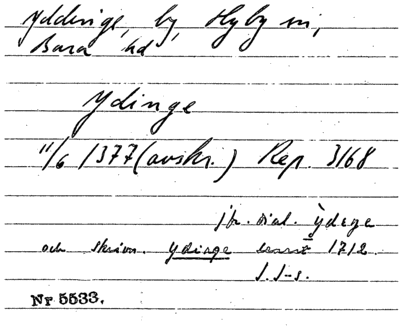 Yddinge, by, Hyby sn,
Bara hd
Ydinge
11/6 1377 (avskr.) Rep. 3168
jfr. dial. ỳdege
och skrivn. Ydinge 1712.
J. J-s.
Nr 5533.